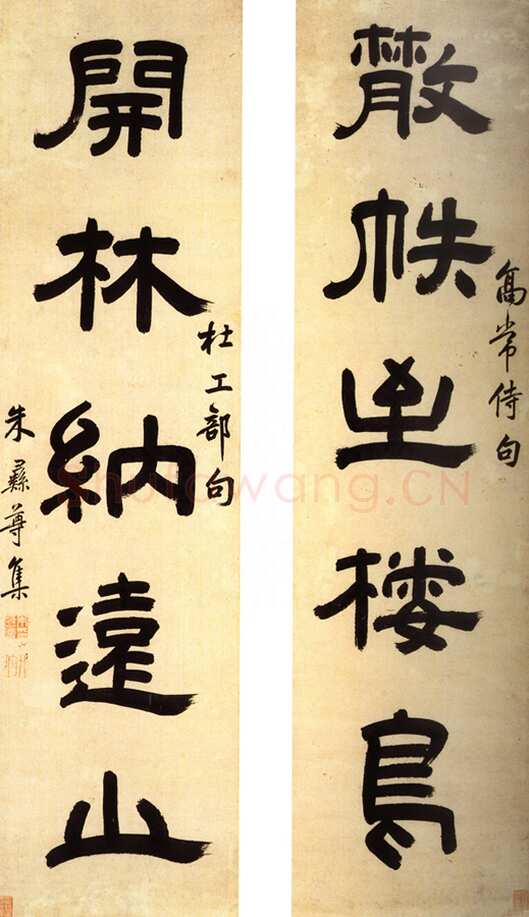 散帙至棲鳥
高常侍句
開林納遠山
杜工部句
朱彝尊集
shufawang.CN